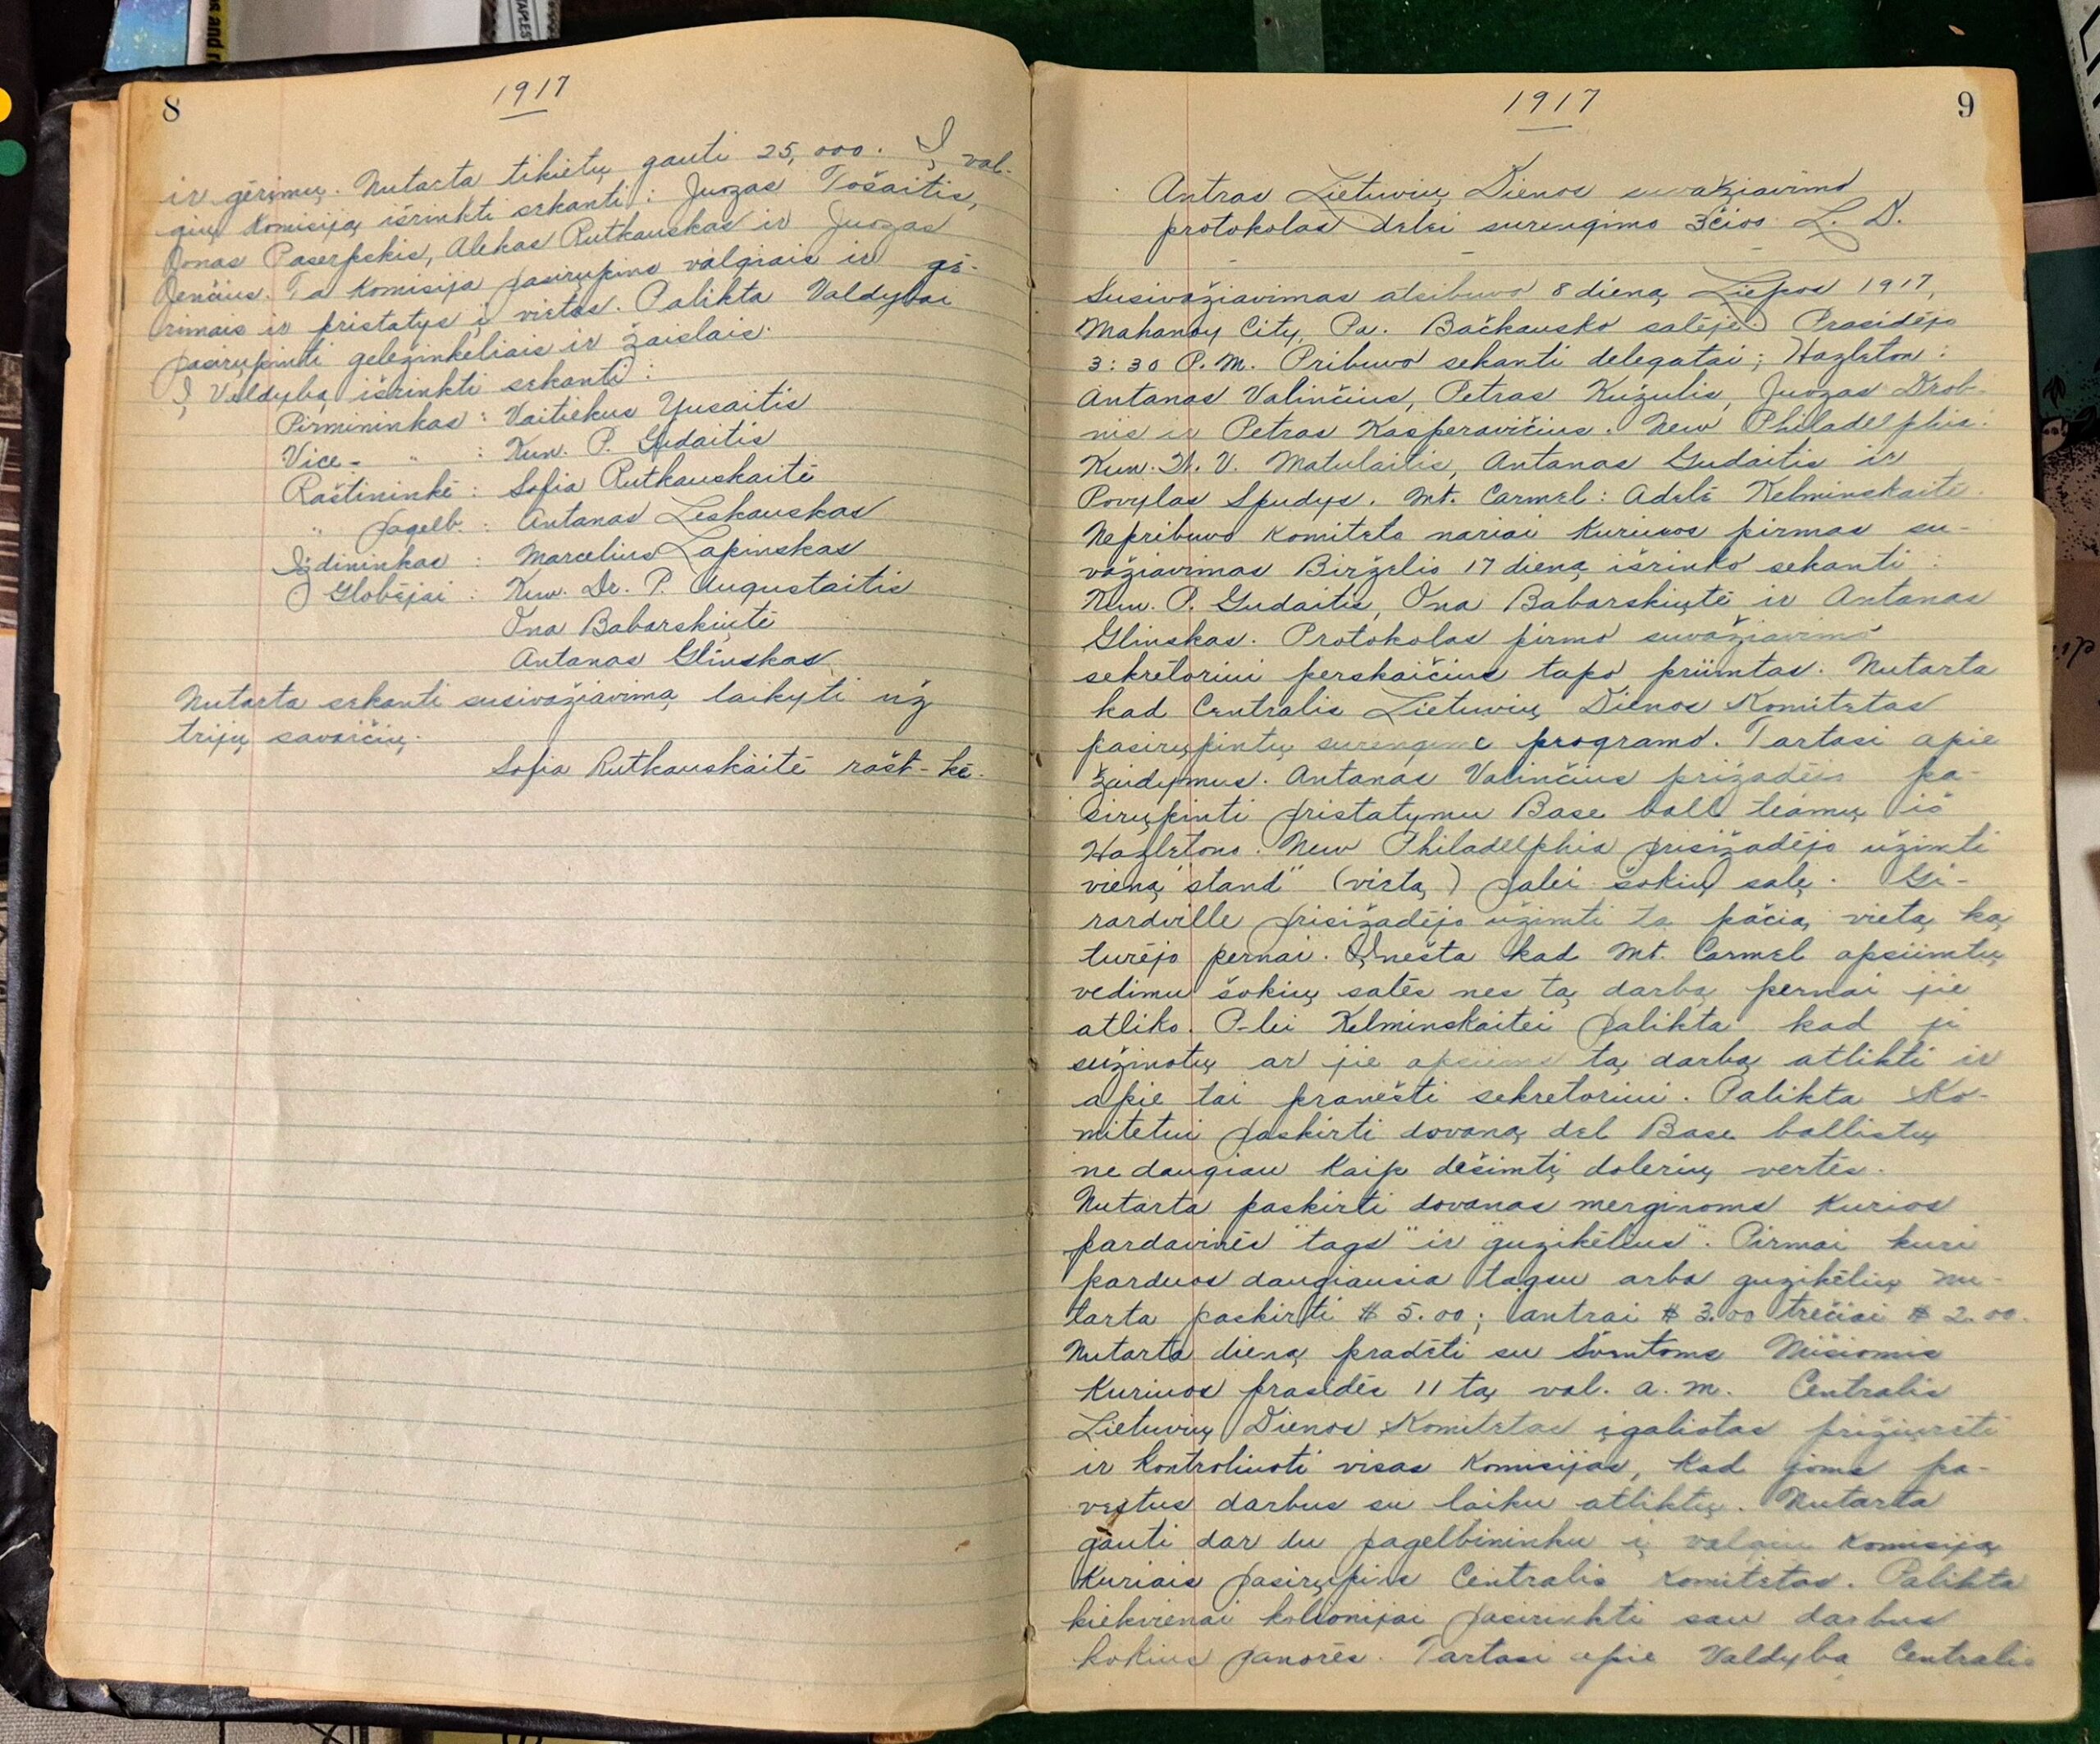 8
1917
ir gėrimų. Nutarta tikietų gauti 25,000. Į val-
gių Komisiją išrinkti sekanti: Juozas Tošaitis,
Jonas Paserpskis, Alekas Rutkauskas ir Juozas
Jenčius. Ta Komisija pasirųpins valgiais ir gė-
rimais ir pristatys į vietas. Palikta Valdybai
pasirųpinti geležinkeliais ir žaislais.
Į Valdybą išrinkti sekanti:
Pirmininkas: Vaitiekus Yusaitis
Vice- " : Kun. P. Gudaitis
Raštininkė: Sofia Rutkauskaitė
" pagelb.: Antanas Leskauskas
Iždininkas: Marcelius Lapinskas
Globėjai: Kun. Dr. P. Augustaitis
Ona Babarskiųtė
Antanas Glinskas
Nutarta sekanti susivažiavimą laikyti už
trijų savaičių.
Sofia Rutkauskaitė rašt-kė.
1917
9
Antras Lietuvių Dienos suvažiavimo
protokolas delei surengimo 3čios L. D.
Susivažiavimas atsibuvo 8 dieną Liepos 1917,
Mahanoy City, Pa. Bačkausko salėje. Prasidėjo
3:30 P.M. Pribuvo sekanti delegatai; Hazleton:
Antanas Valinčius, Petras Kužulis, Juozas Drob-
nis ir Petras Kasperavičius. New Philadelphia:
Kun. V. Matulaitis, Antanas Gudaitis ir
Povylas Spudys. Mt. Carmel: Adelė Kelminskaitė.
Nepribuvo Komiteto nariai kuriuos pirmas su-
važiavimas Birželio 17 dieną išrinko sekanti:
Kun. P. Gudaitis, Ona Babarskiųtė ir Antanas
Glinskas. Protokolas pirmo suvažiavimo
sekretoriui perskaičius tapo priimtas. Nutarta
kad Centralis Lietuvių Dienos Komitetas
pasirųpintų surengime programo. Tartasi apie
žaidymus. Antanas Valinčius prižadėjo pa-
sirųpinti pristatymu Base ball teamų iš
Hazletono. New Philadelphia prisižadėjo užimti
vieną "stand" (vietą) palei šokių salę. Gi-
rardville prisižadėjo užimti ta pačią vietą ką
turėjo pernai. Įnešta kad Mt. Carmel apsiimtų
vedimu šokių salės nes tą darbą pernai jie
atliko. P-lei Kelminskaitei palikta kad ji
sužinotų ar jie apsiims tą darbą atlikti ir
apie tai pranešti sekretoriui. Palikta Ko-
mitetui paskirti dovaną del Base ballistų
ne daugiau kaip dešimtį dolerių vertės.
Nutarta paskirti dovanas merginoms kurios
pardavinės "tags" ir "guzikėlius". Pirmai kuri
parduos daugiausia tagsu arba guzikėlių nu-
tarta paskirti $5.00; antrai $3.00 trečiai $2.00.
Nutarta dieną pradėti su Šventoms Mišiomis
Kuriuos prasidės 11 tą val. a.m. Centralis
Lietuvių Dienos Komitetas įgaliotas prižiųrėti
ir kontroliuoti visas Komisijas, kad joms pa-
vestus darbus su laiku atliktų. Nutarta
gauti dar du pagelbininku į valgiu Komisiją
Kuriais pasirųpins Centralis Komitetas. Palikta
kiekvienai kolionijai pasirinkti sau darbus
kokius panorės. Tartasi apie Valdybą Centralio